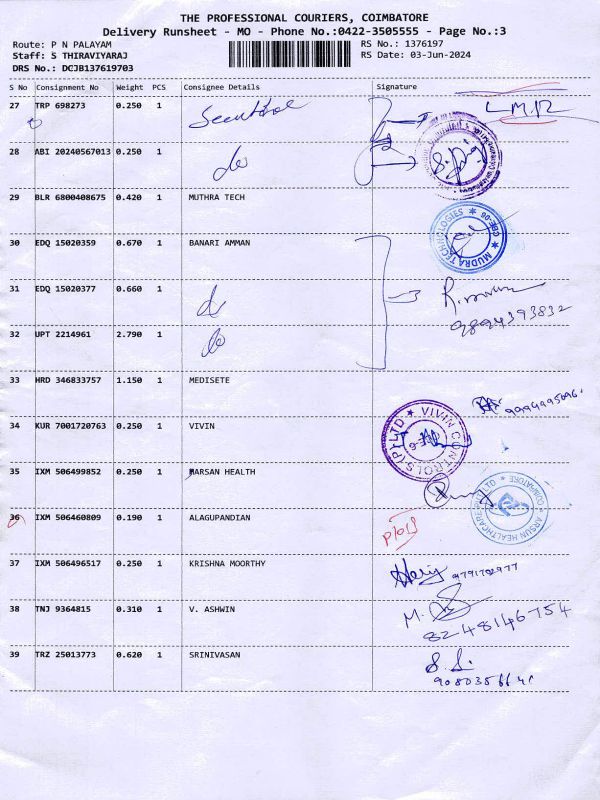 THE PROFESSIONAL COURIERS, COIMBATORE
Delivery Runsheet - MO - Phone No.:0422-3505555 - Page No.:3
Route: P N PALAYAM RS No.: 1376197
Staff: S THIRAVIYARAJ RS Date: 03-Jun-2024
DRS No.: DCJB137619703
S No Consignment No Weight PCS Consignee Details Signature
27 TRP 698273 0.250 1 L.M.R
28 ABI 20240567013 0.250 1 do
29 BLR 6800408675 0.420 1 MUTHRA TECH
MUDRA TECHNOLOGIES CBE-06
30 EDQ 15020359 0.670 1 BANARI AMMAN
31 EDQ 15020377 0.660 1
9894393832
32 UPT 2214961 2.790 1
33 HRD 346833757 1.150 1 MEDISETE
34 KUR 7001720763 0.250 1 VIVIN
VIVIN CONTROLS (P) LTD CBE-6
35 IXM 506499852 0.250 1 HARSAN HEALTH
ARSUN HEALTHCARE PVT LTD COIMBATORE
36 IXM 506460809 0.190 1 ALAGUPANDIAN
37 IXM 506496517 0.250 1 KRISHNA MOORTHY
9791702977
38 TNJ 9364815 0.310 1 V. ASHWIN
8248146754
39 TRZ 25013773 0.620 1 SRINIVASAN
S. S.